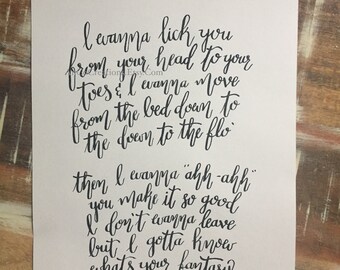 I wanna lick you
from your head to your
toes & I wanna move
from the bed down to
the down to the flo'
then I wanna "ahh-ahh"
you make it so good
I don't wanna leave
but I gotta know
what's your fantasy